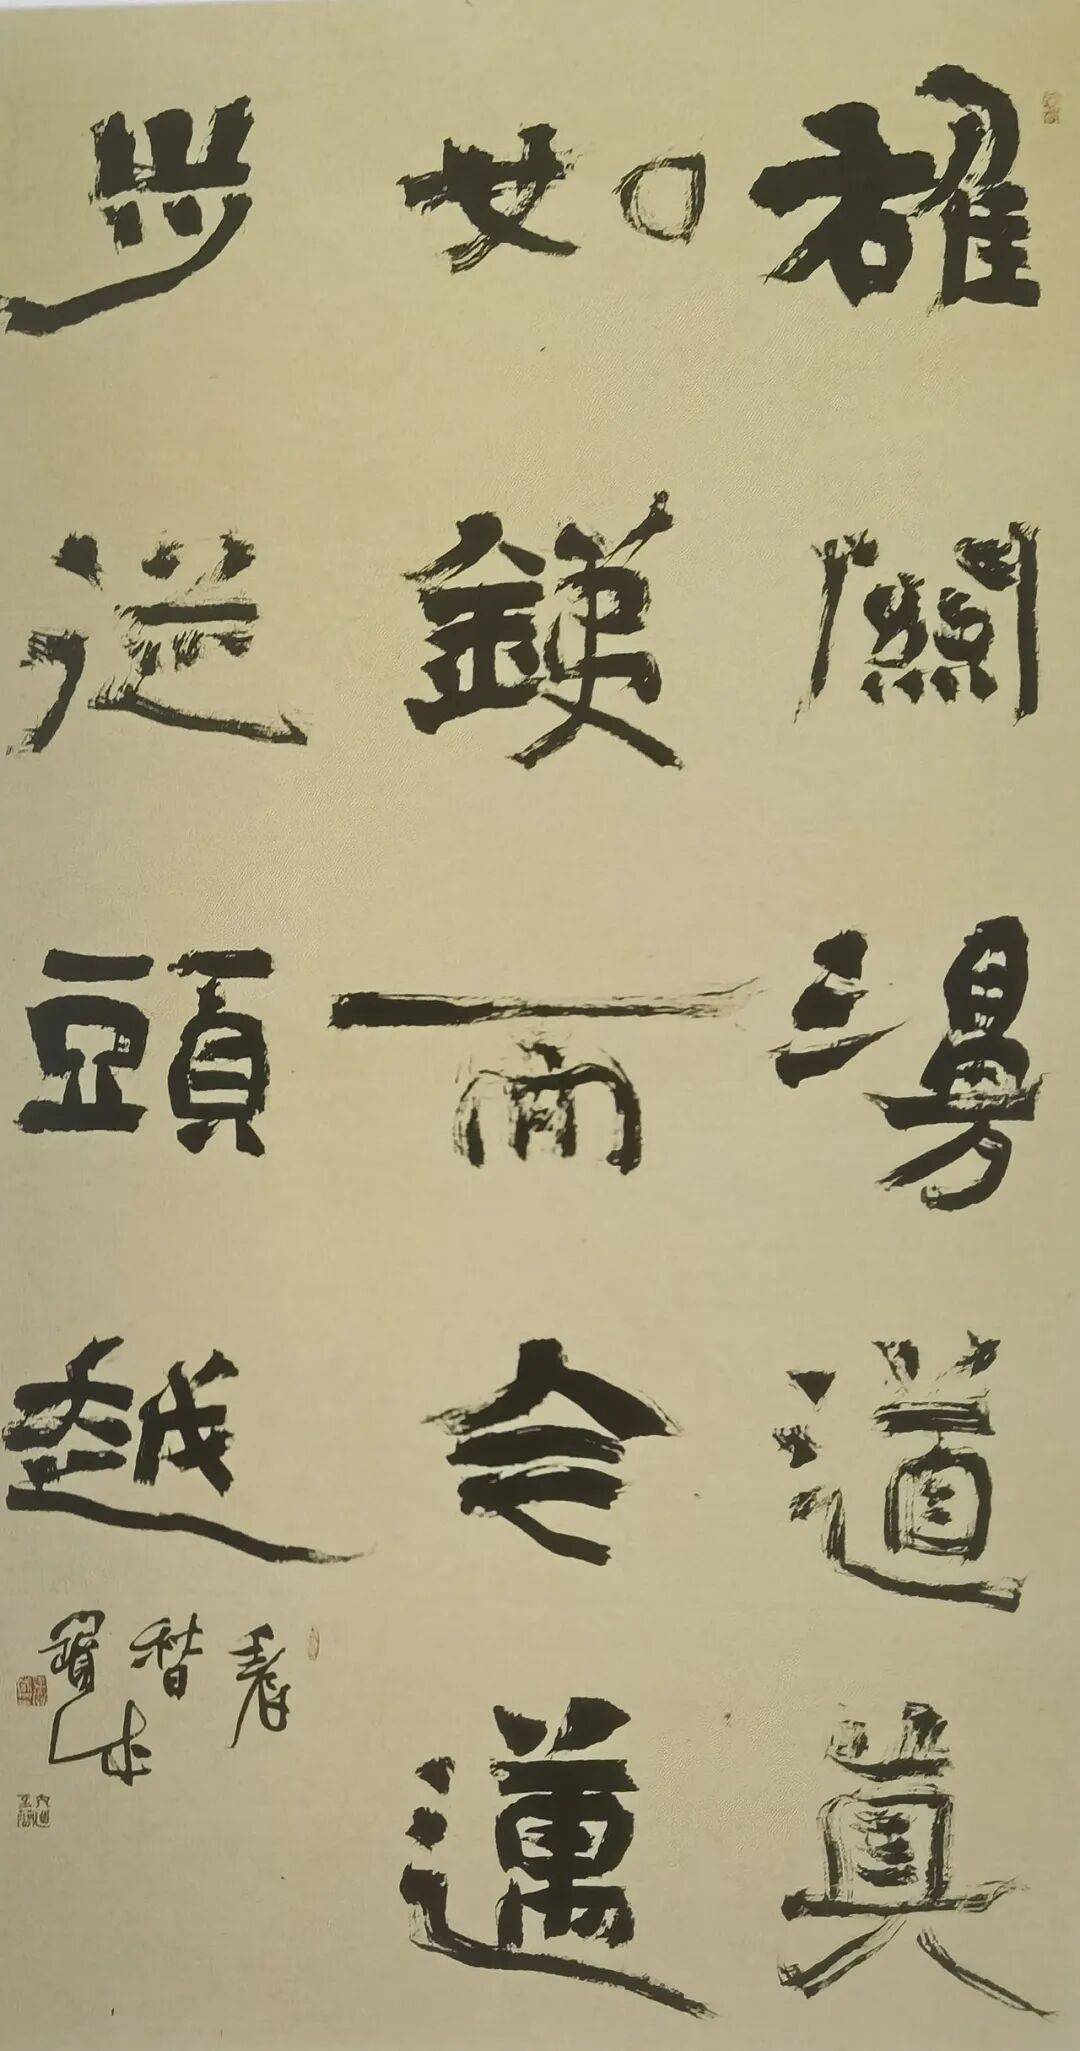 雄關漫道真
如鐵而今邁
步從頭越